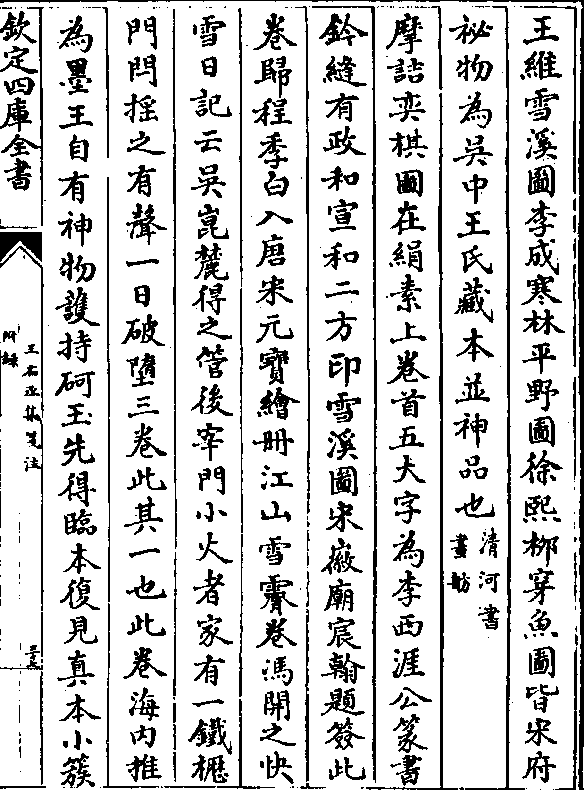 王維雪溪圖李成寒林平野圖徐熙栁穿魚圖皆宋府
祕物為吳中王氏藏本並神品也清河書
畫舫
摩詰奕棋圖在絹素上卷首五大字為李西涯公篆書
鈐縫有政和宣和二方印雪溪圖宋徽廟宸翰題簽此
卷歸程季白入唐宋元寶繪冊江山雪霽卷馮開之快
雪日記云吳崑麓得之管後宰門小火者家有一鐵櫪
門閂搖之有聲一日破墮三卷此其一也此卷海内推
為墨王自有神物護持砢玉先得臨本復見真本小簇
欽定四庫全書
王右丞集箋注
附錄